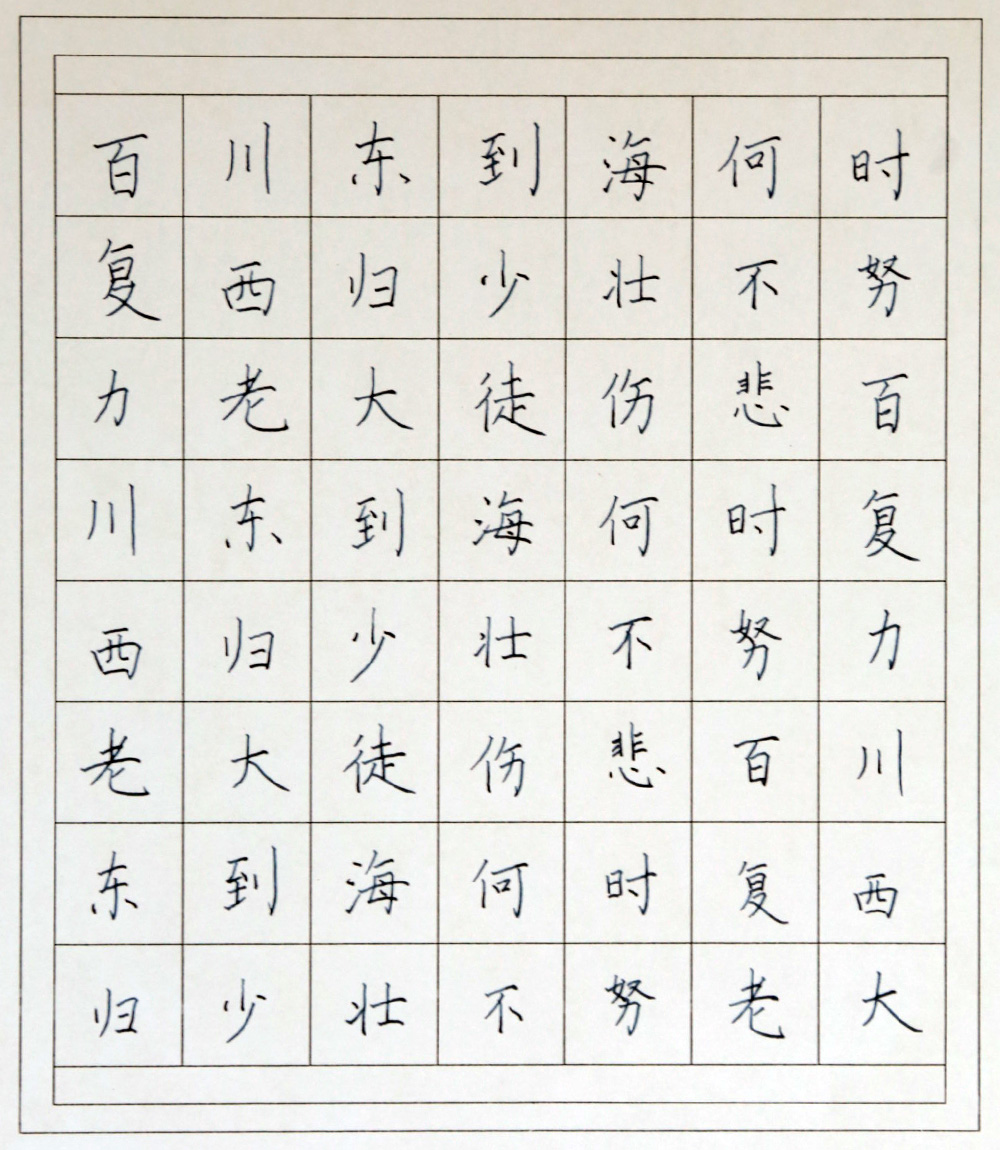 百川东到海何时
复西归少壮不努
力老大徒伤悲百
川东到海何时复
西归少壮不努力
老大徒伤悲百川
东到海何时复西
归少壮不努老大